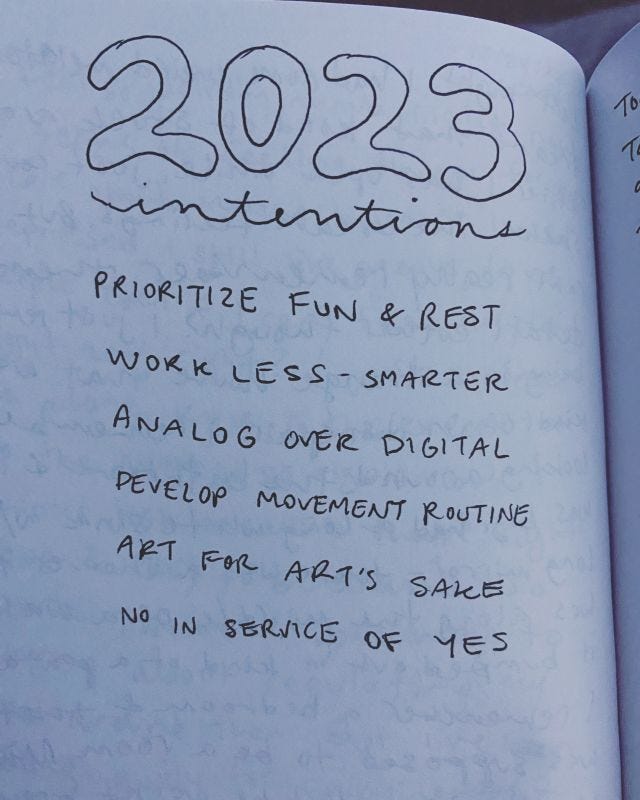 2023
intentions
PRIORITIZE FUN & REST
WORK LESS - SMARTER
ANALOG OVER DIGITAL
DEVELOP MOVEMENT ROUTINE
ART FOR ART'S SAKE
NO IN SERVICE OF YES